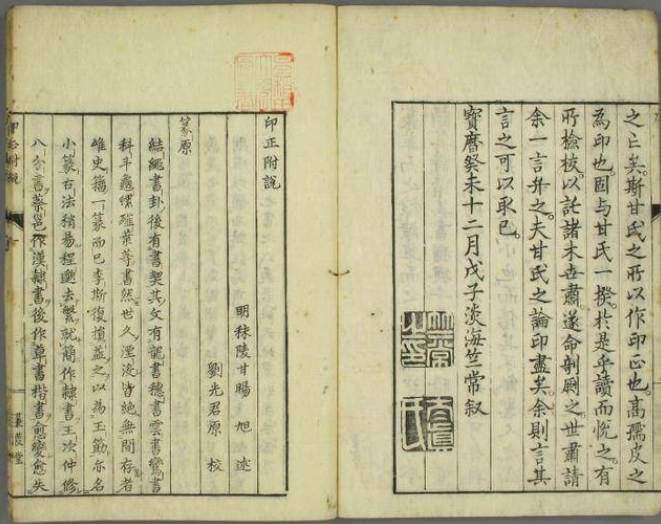 之亡矣斯甘氏之所以作印正也高孺皮之
為印也固与甘氏一揆於是乎讀而悦之有
所檢校以託諸木世肅遂命剞劂之世肅請
余一言弁之夫甘氏之論印盡矣余則言其
言之可以取已
寶曆癸未十二月戊子淡海竺常叙
印正附說
明秣陵甘暘旭述
劉光君原校
篆原
結繩書卦後有書契其文有龍書穗書雲書鸞書
科斗龜螺薤葉等書然世久湮沒皆絕無間存者
維史籀一篆而已李斯復損益之以為玉筯亦名
小篆古法稍易程邈去繁就簡作隸書王次仲修
八分書蔡邕作漢隸書後作草書楷書愈變愈失
印正附說
蒹葭堂